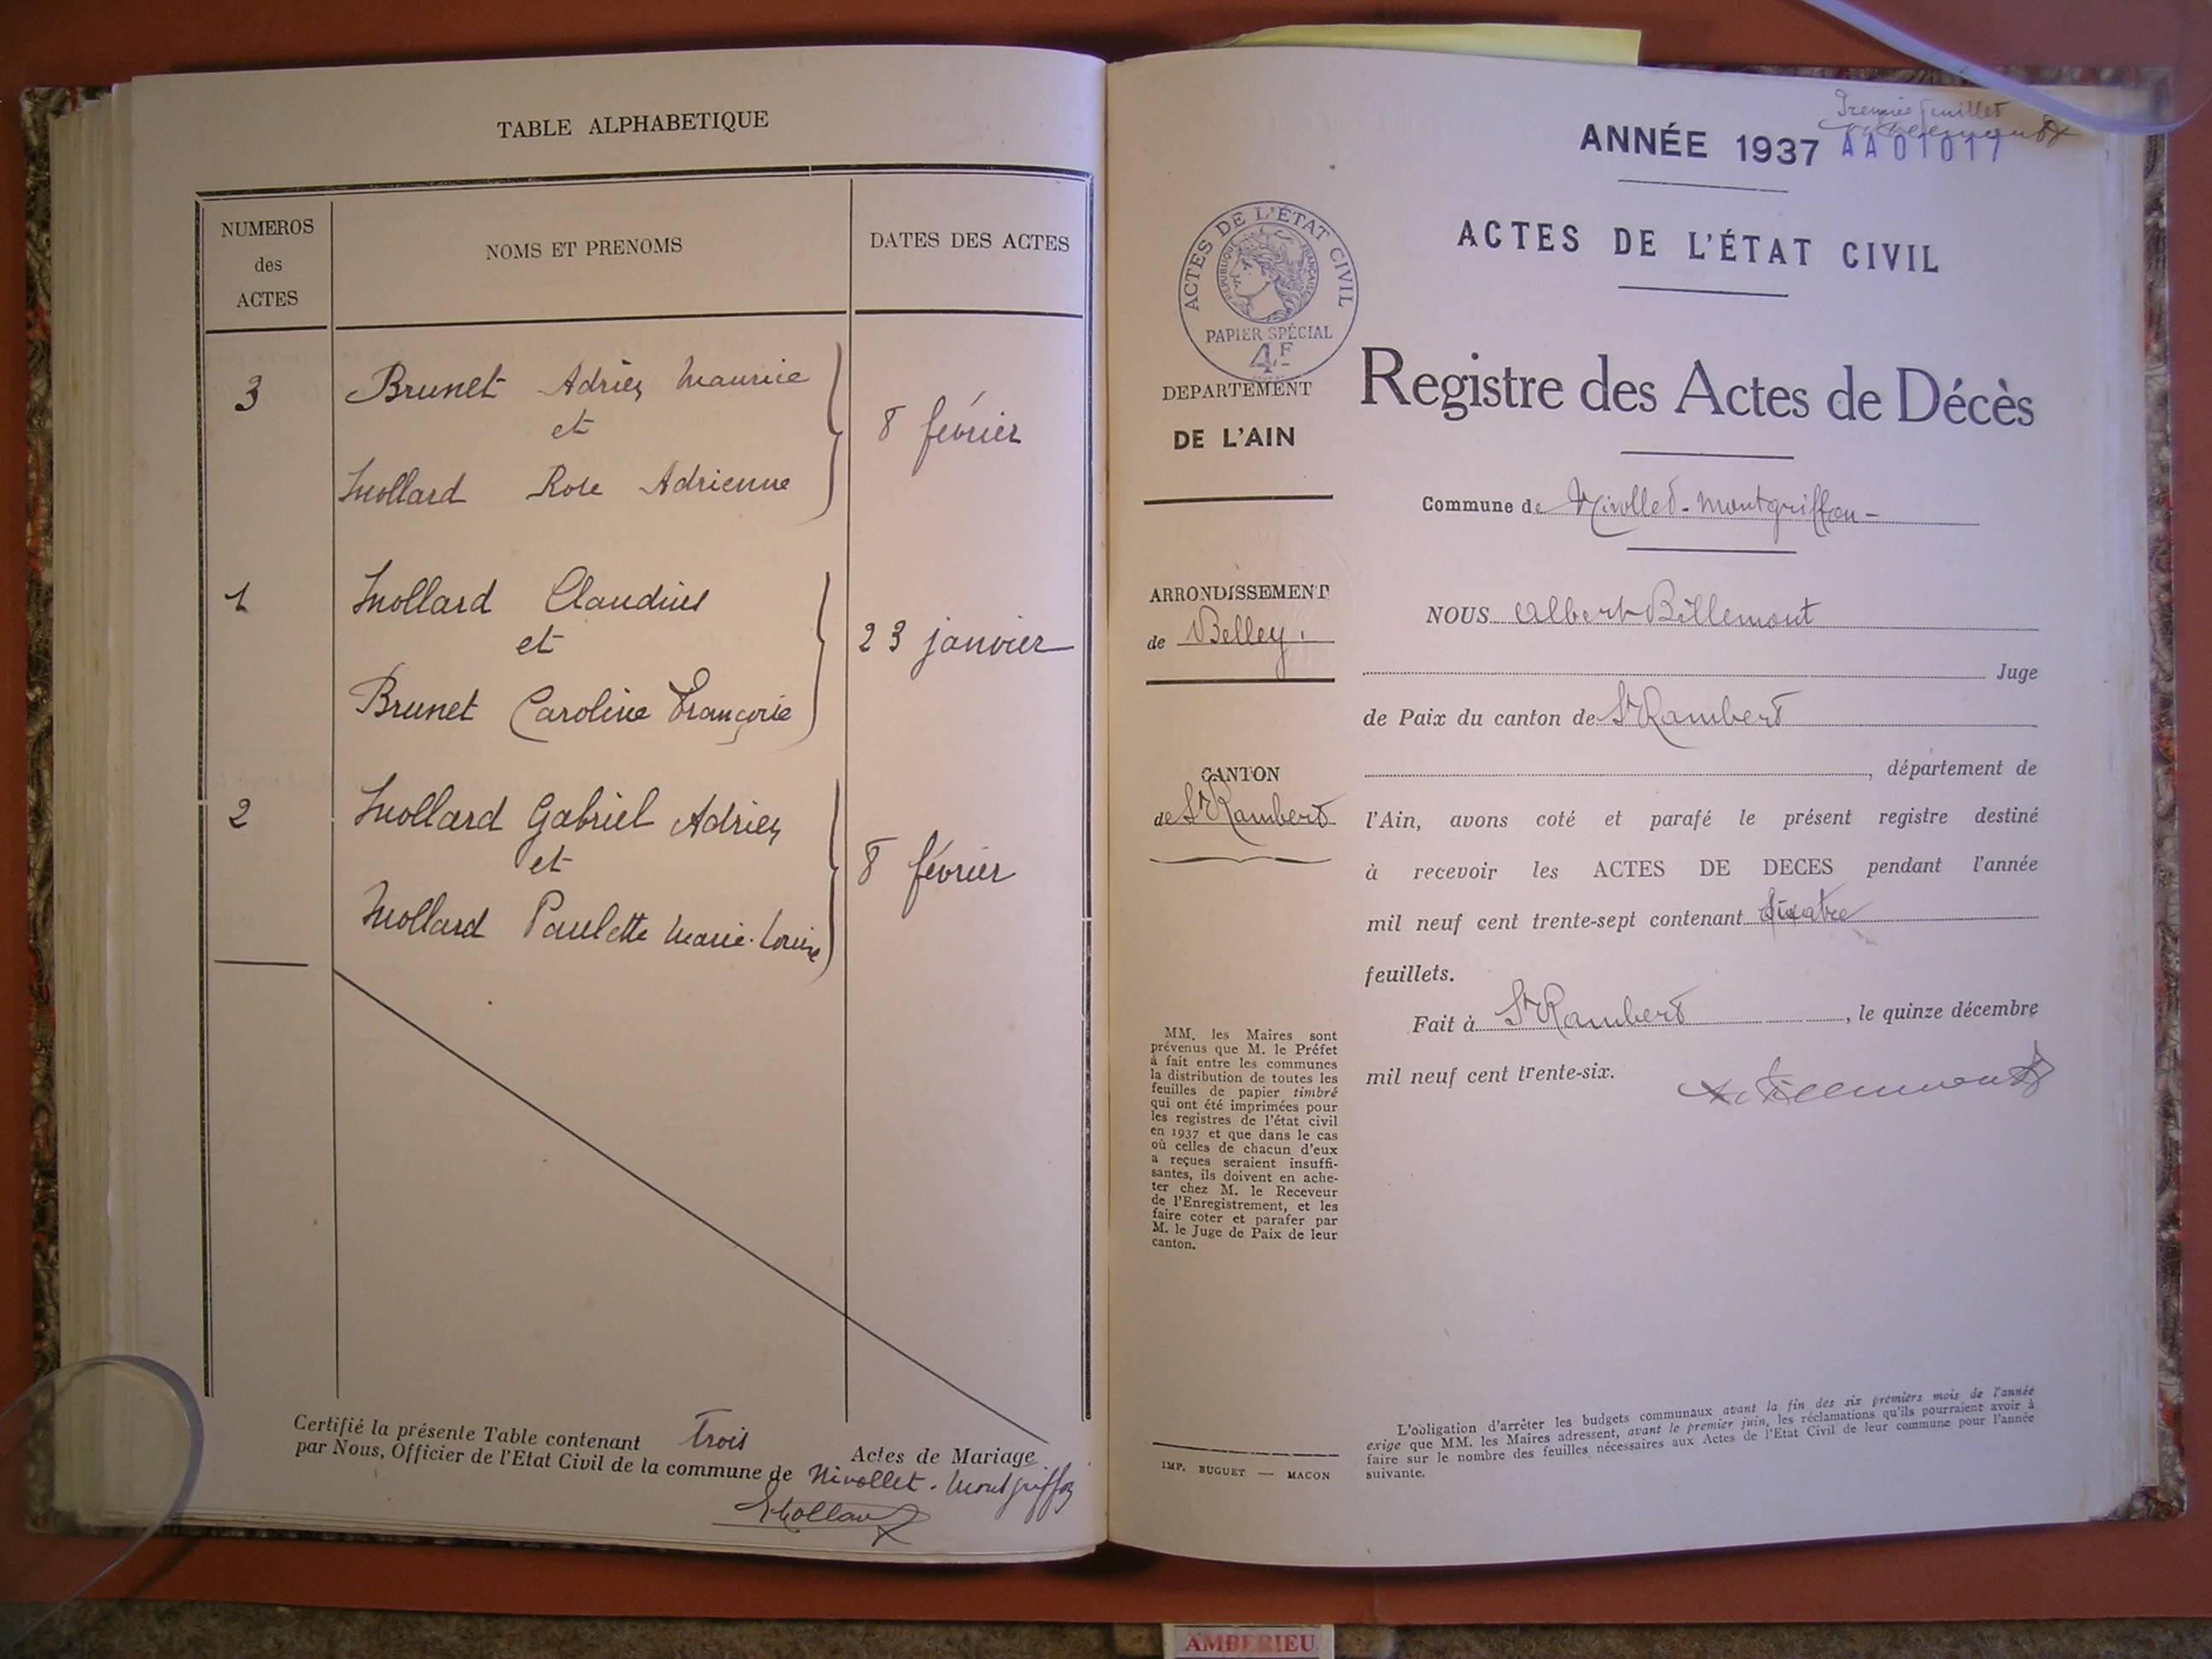 TABLE ALPHABETIQUE
NUMEROS
des
ACTES
NOMS ET PRENOMS
DATES DES ACTES
3
Brunet Adrien Maurice
et
Mollard Rose Adrienne
8 février
1
Mollard Claudius
et
Brunet Caroline Françoise
23 janvier
2
Mollard Gabriel Adrien
et
Mollard Paulette Marie-Louise
8 février
Certifié la présente Table contenant Trois Actes de Mariage
par Nous, Officier de l'Etat Civil de la commune de Nivollet-Montgriffon
Mollard
Premier feuillet
ANNÉE 1937 AA01017
ACTES DE L'ÉTAT CIVIL
ACTES DE L'ÉTAT CIVIL
RÉPUBLIQUE FRANÇAISE
PAPIER SPÉCIAL
4F
Registre des Actes de Décès
DEPARTEMENT
DE L'AIN
Commune de Nivollet-Montgriffon-
ARRONDISSEMENT
de Belley.
CANTON
de St Rambert
NOUS Albert Billemont
Juge
de Paix du canton de St Rambert
, département de
l'Ain, avons coté et parafé le présent registre destiné
à recevoir les ACTES DE DECES pendant l'année
mil neuf cent trente-sept contenant
feuillets.
Fait à St Rambert, le quinze décembre
mil neuf cent trente-six.
MM. les Maires sont
prévenus que M. le Préfet
à fait entre les communes
la distribution de toutes les
feuilles de papier timbré
qui ont été imprimées pour
les registres de l'état civil
en 1937 et que dans le cas
où celles de chacun d'eux
a reçues seraient insuffi-
santes, ils doivent en ache-
ter chez M. le Receveur
de l'Enregistrement, et les
faire coter et parafer par
M. le Juge de Paix de leur
canton.
IMP. BUGUET — MACON
L'obligation d'arrêter les budgets communaux avant la fin des six premiers mois de l'année
exige que MM. les Maires adressent, avant le premier juin, les réclamations qu'ils pourraient avoir à
faire sur le nombre des feuilles nécessaires aux Actes de l'Etat Civil de leur commune pour l'année
suivante.
AMBERIEU